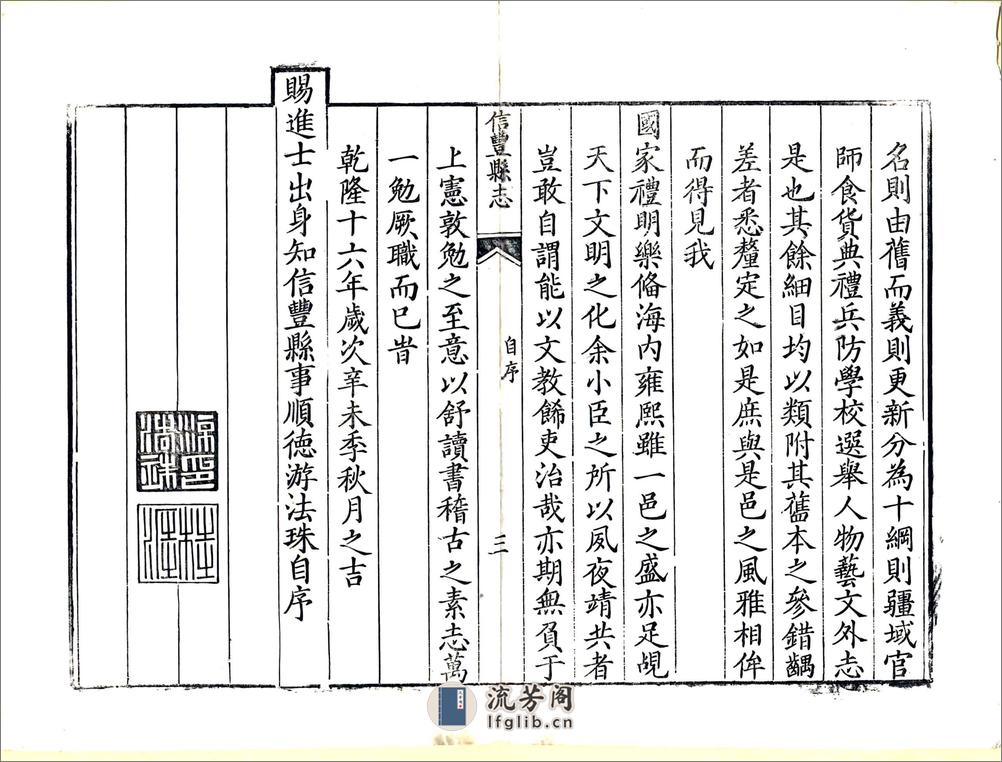 名則由舊而義則更新分為十綱則疆域官
師食貨典禮兵防學校選舉人物藝文外志
是也其餘細目均以類附其舊本之參錯齵
差者悉釐定之如是庶與是邑之風雅相侔
而得見我
國家禮明樂偹海内雍熙雖一邑之盛亦足覘
天下文明之化余小臣之所以夙夜靖共者
豈敢自謂能以文教餙吏治哉亦期無負于
信豐縣志
自序
三
上憲敦勉之至意以舒讀書稽古之素志萬
一勉厥職而已旹
乾隆十六年歲次辛未季秋月之吉
賜進士出身知信豐縣事順德游法珠自序
流芳阁
lfglib.cn